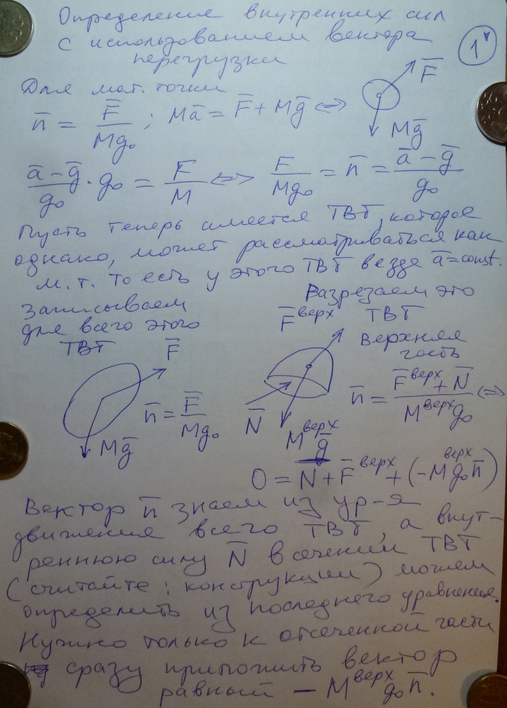 Определение внутренних сил
с использованием вектора
перегрузки
1
Для мат. точки
n̄ = F̄/Mg₀ ; Mā = F̄ + Mḡ ⇔
F̄
Mḡ
(ā − ḡ)/g₀ · g₀ = F̄/M ⇔ F̄/Mg₀ = n̄ = (ā − ḡ)/g₀
Пусть теперь имеется ТВТ, которое
однако, может рассматриваться как
м.т. То есть у этого ТВТ везде ā = const.
Записываем
для всего этого
ТВТ
F̄
Mḡ
n̄ = F̄/Mg₀
Разрезаем это
ТВТ
F̄ верх
Верхняя
часть
N̄
M верх ḡ
n̄ = (F̄ верх + N̄)/(M верх g₀) ⇔
0 = N̄ + F̄ верх + (−M верх g₀ n̄)
Вектор n̄ знаем из ур-я
движения всего ТВТ, а внут-
реннюю силу N̄ в сечении ТВТ
(считайте: конструкции) можем
определить из последнего уравнения.
Нужно только к отсеченной части
сразу приложить вектор
равный − M верх g₀ n̄.